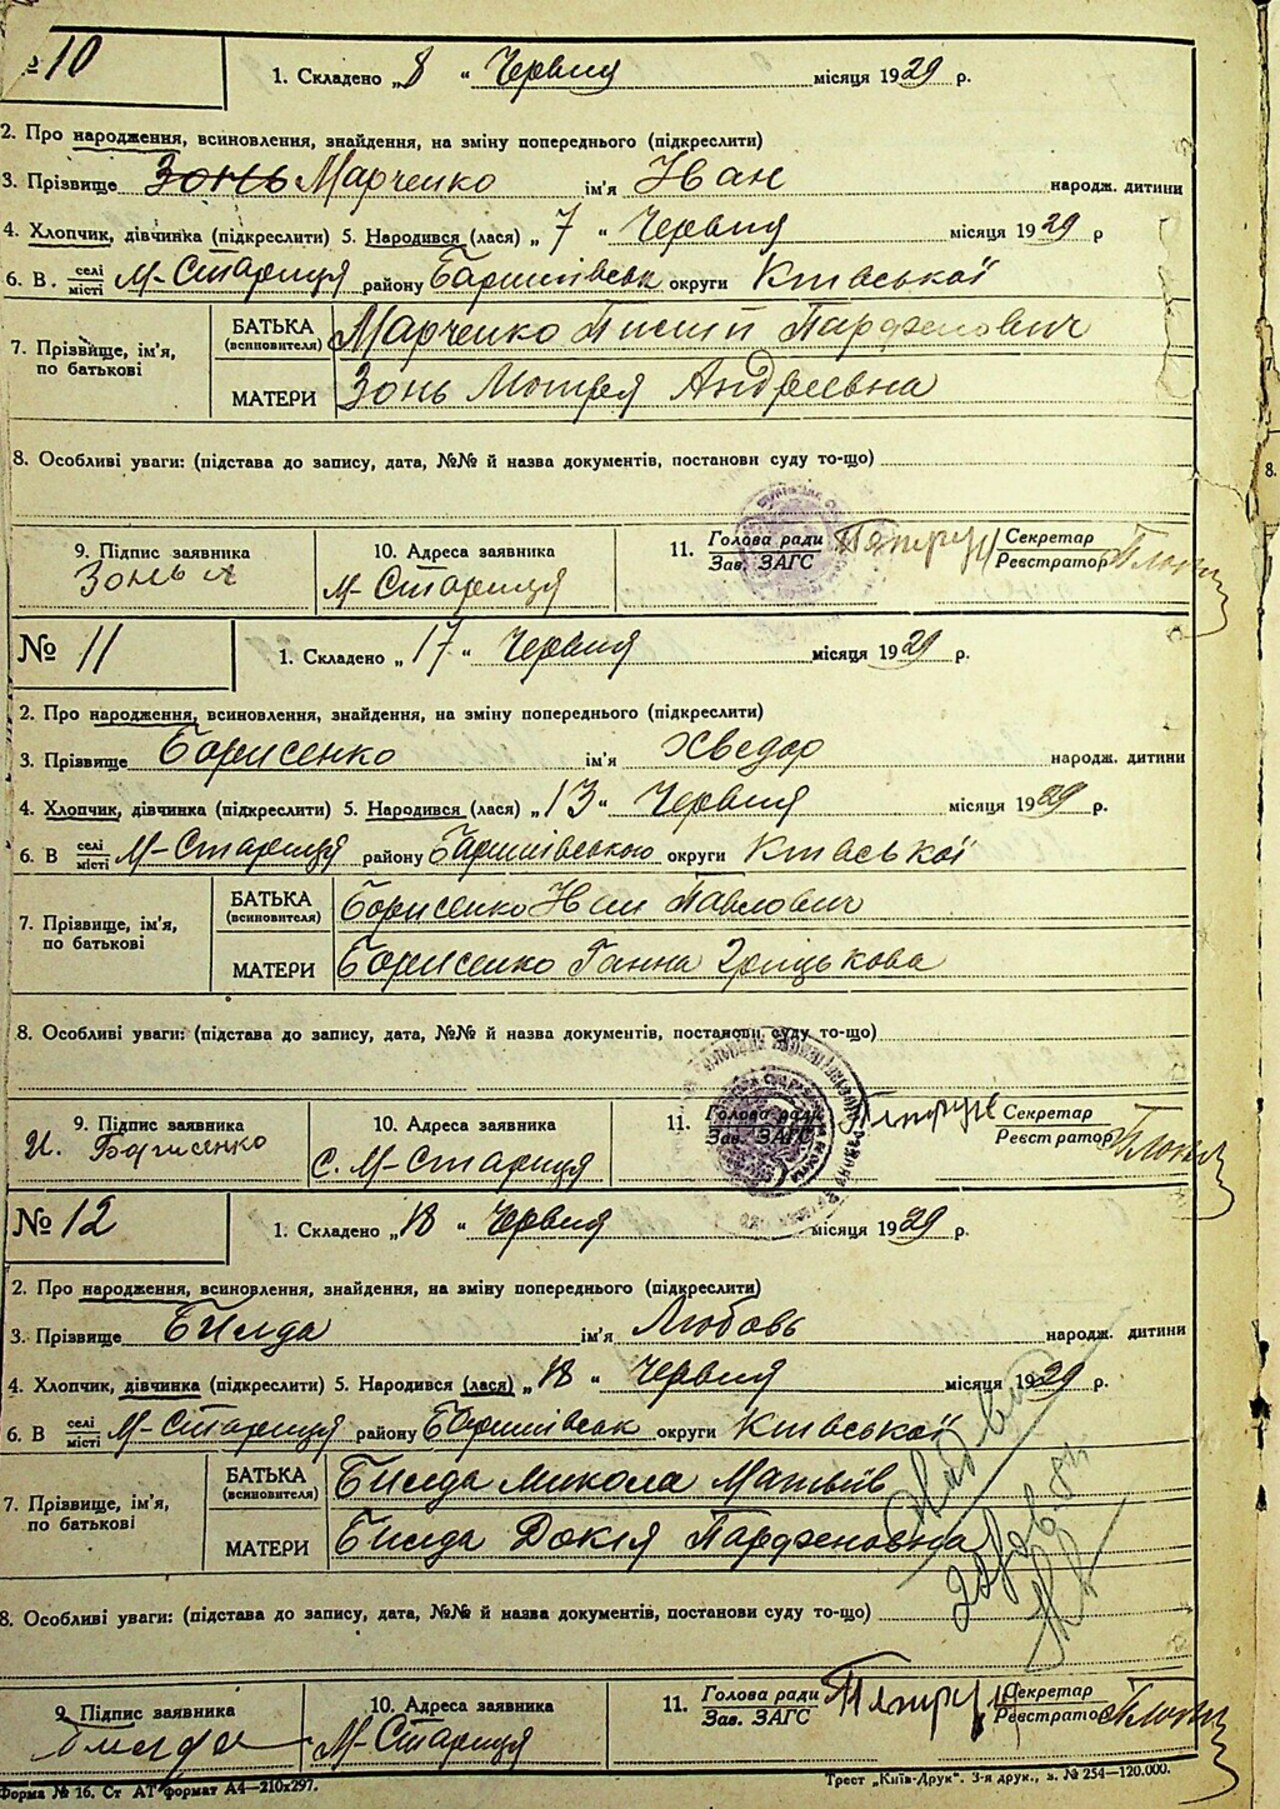 № 10
1. Складено „8“ Червня місяця 1929 р.
2. Про народження, всиновлення, знайдення, на зміну попереднього (підкреслити)
3. Прізвище Зонь Марченко ім'я Иван народж. дитини
4. Хлопчик, дівчинка (підкреслити) 5. Народився (лася) „7“ Червня місяця 1929 р
6. В. селі місті М-Стариця району Баришівськ округи Київської
7. Прізвище, ім'я, по батькові
БАТЬКА (всиновителя) Марченко Парфенович
МАТЕРИ Зонь Мотря Андреевна
8. Особливі уваги: (підстава до запису, дата, №№ й назва документів, постанови суду то-що)
9. Підпис заявника 10. Адреса заявника 11. Голова ради Зав. ЗАГС Секретар Реєстратор
Зонь М-Стариця
№ 11
1. Складено „17“ Червня місяця 1929 р.
2. Про народження, всиновлення, знайдення, на зміну попереднього (підкреслити)
3. Прізвище Борисенко ім'я Хведор народж. дитини
4. Хлопчик, дівчинка (підкреслити) 5. Народився (лася) „13“ Червня місяця 1929 р.
6. В селі місті М-Стариця району Баришівською округи Київської
7. Прізвище, ім'я, по батькові
БАТЬКА (всиновителя) Борисенко Павлович
МАТЕРИ Борисенко Ганна Грицькова
8. Особливі уваги: (підстава до запису, дата, №№ й назва документів, постанови суду то-що)
9. Підпис заявника 10. Адреса заявника 11. Голова ради Зав. ЗАГС Секретар Реєстратор
И. Борисенко с. М-Стариця
№ 12
1. Складено „18“ Червня місяця 1929 р.
2. Про народження, всиновлення, знайдення, на зміну попереднього (підкреслити)
3. Прізвище ім'я Любовь народж. дитини
4. Хлопчик, дівчинка (підкреслити) 5. Народився (лася) „18“ Червня місяця 1929 р.
6. В селі місті М-Стариця району Баришівськ округи Київської
7. Прізвище, ім'я, по батькові
БАТЬКА (всиновителя) Микола Матвіїв
МАТЕРИ Докія Парфеновна
8. Особливі уваги: (підстава до запису, дата, №№ й назва документів, постанови суду то-що)
9. Підпис заявника 10. Адреса заявника 11. Голова ради Зав. ЗАГС Секретар Реєстратор
М-Стариця
Форма № 16. Ст АТ формат А4—210x297.
Трест „Київ-Друк“. 3-я друк., з. № 254—120.000.